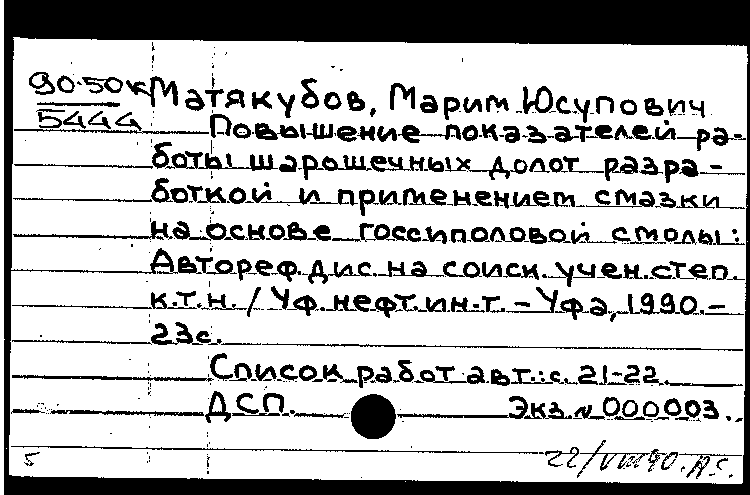 90-50к
5444
Матякубов, Марим Юсупович
Повышение показателей ра-
боты шарошечных долот разра-
боткой и применением смазки
на основе госсиполовой смолы:
Автореф. дис. на соиск. учен. степ.
к.т.н. / Уф. нефт. ин-т. - Уфа, 1990. -
23с.
Список работ авт.: с. 21-22.
ДСП. Экз. N 000003.
5 22/VIII 90.